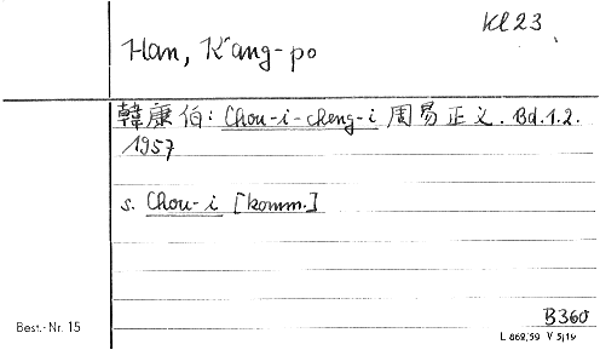 Kl 23
Han, K'ang-po
韓康伯: Chou-i-cheng-i 周易正义. Bd.1.2.
1957
s. Chou-i [komm.]
B360
Best.-Nr. 15
L 862/59 V 5/19